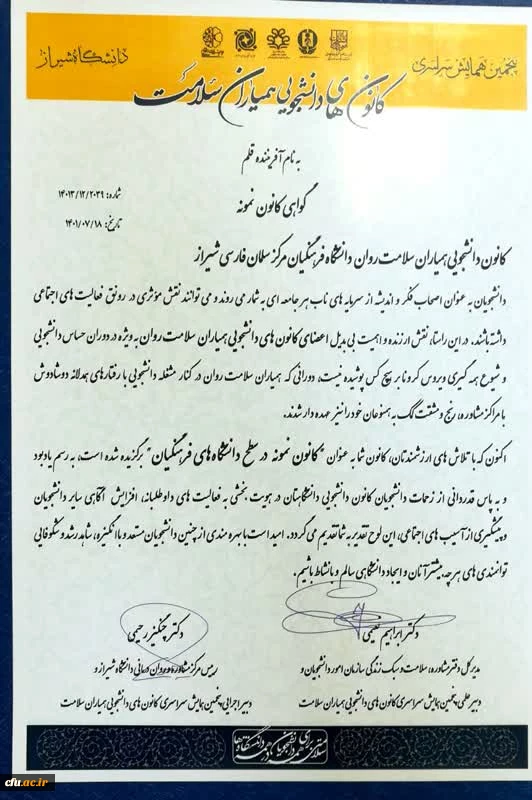 پنجمین همایش سراسری
دانشگاه شیراز
کانون های دانشجویی همیاران سلامت
به نام آفریننده قلم
گواهی کانون نمونه
شماره: ۱۴۰۱۳/۱۲/۲۰۳۹
تاریخ: ۱۴۰۱/۰۷/۱۸
کانون دانشجویی همیاران سلامت روان دانشگاه فرهنگیان مرکز سلمان فارسی شیراز
دانشجویان به عنوان اصحاب فکر و اندیشه از سرمایه های ناب هر جامعه ای به شمار می روند و می توانند نقش مؤثری در رونق فعالیت های اجتماعی
داشته باشند. در این راستا، نقش ارزنده و اهمیت بی بدیل اعضای کانون های دانشجویی همیاران سلامت روان به ویژه در دوران حساس دانشجویی
و شیوع همه گیری ویروس کرونا بر هیچ کس پوشیده نیست، دورانی که همیاران سلامت روان در کنار مشغله دانشجویی با رفتارهای همدلانه دوشادوش
با مراکز مشاوره، رنج و مشقت کمک به همنوعان خود را نیز عهده دار شدند.
اکنون که با تلاش های ارزشمندتان، کانون شما به عنوان "کانون نمونه در سطح دانشگاه های فرهنگیان" برگزیده شده است، به رسم یادبود
و به پاس قدردانی از زحمات دانشجویان کانون دانشجویی دانشگاهتان در هویت بخشی به فعالیت های داوطلبانه، افزایش آگاهی سایر دانشجویان
و پیشگیری از آسیب های اجتماعی، این لوح تقدیر به شما تقدیم می گردد. امید است با بهره مندی از چنین دانشجویان مستعد و باانگیزه، شاهد رشد و شکوفائی
توانمندی های هر چه بیشتر آنان و ایجاد دانشگاهی سالم و بانشاط باشیم.
دکتر ابراهیم نعیمی
مدیرکل دفتر مشاوره، سلامت و سبک زندگی سازمان امور دانشجویان و
دبیر علمی پنجمین همایش سراسری کانون های دانشجویی همیاران سلامت
دکتر چنگیز رحیمی
رییس مرکز مشاوره و روان درمانی دانشگاه شیراز و
دبیر اجرایی پنجمین همایش سراسری کانون های دانشجویی همیاران سلامت
cfu.ac.ir